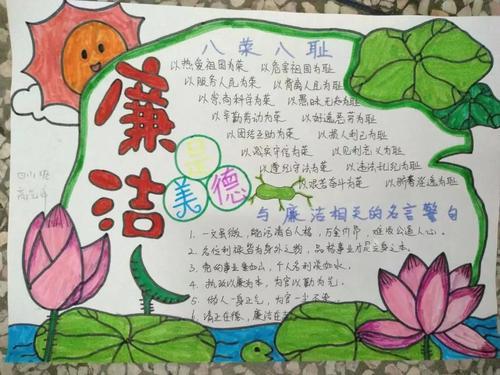 廉洁
是
美德
八荣八耻
以热爱祖国为荣 以危害祖国为耻
以服务人民为荣 以背离人民为耻
以崇尚科学为荣 以愚昧无知为耻
以辛勤劳动为荣 以好逸恶劳为耻
以团结互助为荣 以损人利己为耻
以诚实守信为荣 以见利忘义为耻
以遵纪守法为荣 以违法乱纪为耻
以艰苦奋斗为荣 以骄奢淫逸为耻
与廉洁相关的名言警句
1. 一文虽微,能污清白人格,万金
2. 名位利禄皆为身外之物,品格事业才是立身之本。
3. 党的事业重如山,个人名利淡如水。
4. 执政以廉为本,为官以勤为先。
5. 做人一身正气,为官一尘不染。
6. 清正在德,廉洁在